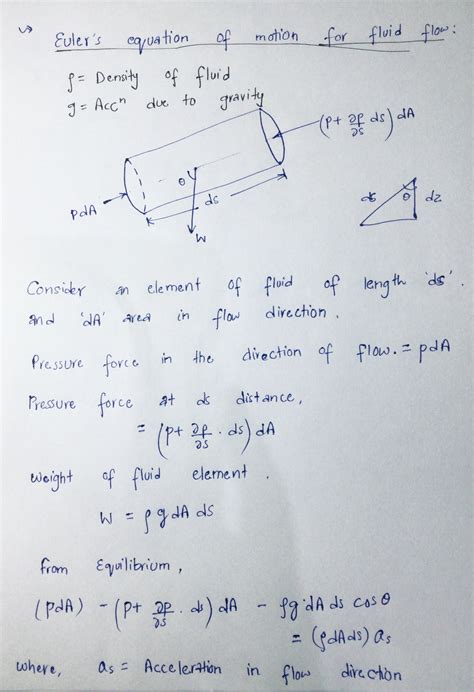 Euler's equation of motion for fluid flow:
ρ = Density of fluid
g = Accⁿ due to gravity
(P+ ∂P/∂s ds) dA
θ
ds
PdA
W
ds θ dz
Consider an element of fluid of length 'ds'.
and 'dA' area in flow direction.
Pressure force in the direction of flow. = pdA
Pressure force at ds distance,
= (P+ ∂P/∂s . ds) dA
Weight of fluid element.
W = ρ g dA ds
from Equilibrium,
(PdA) - (P+ ∂P/∂s . ds) dA - ρg dA ds cos θ
= (ρdAds) as
where, as = Acceleration in flow direction